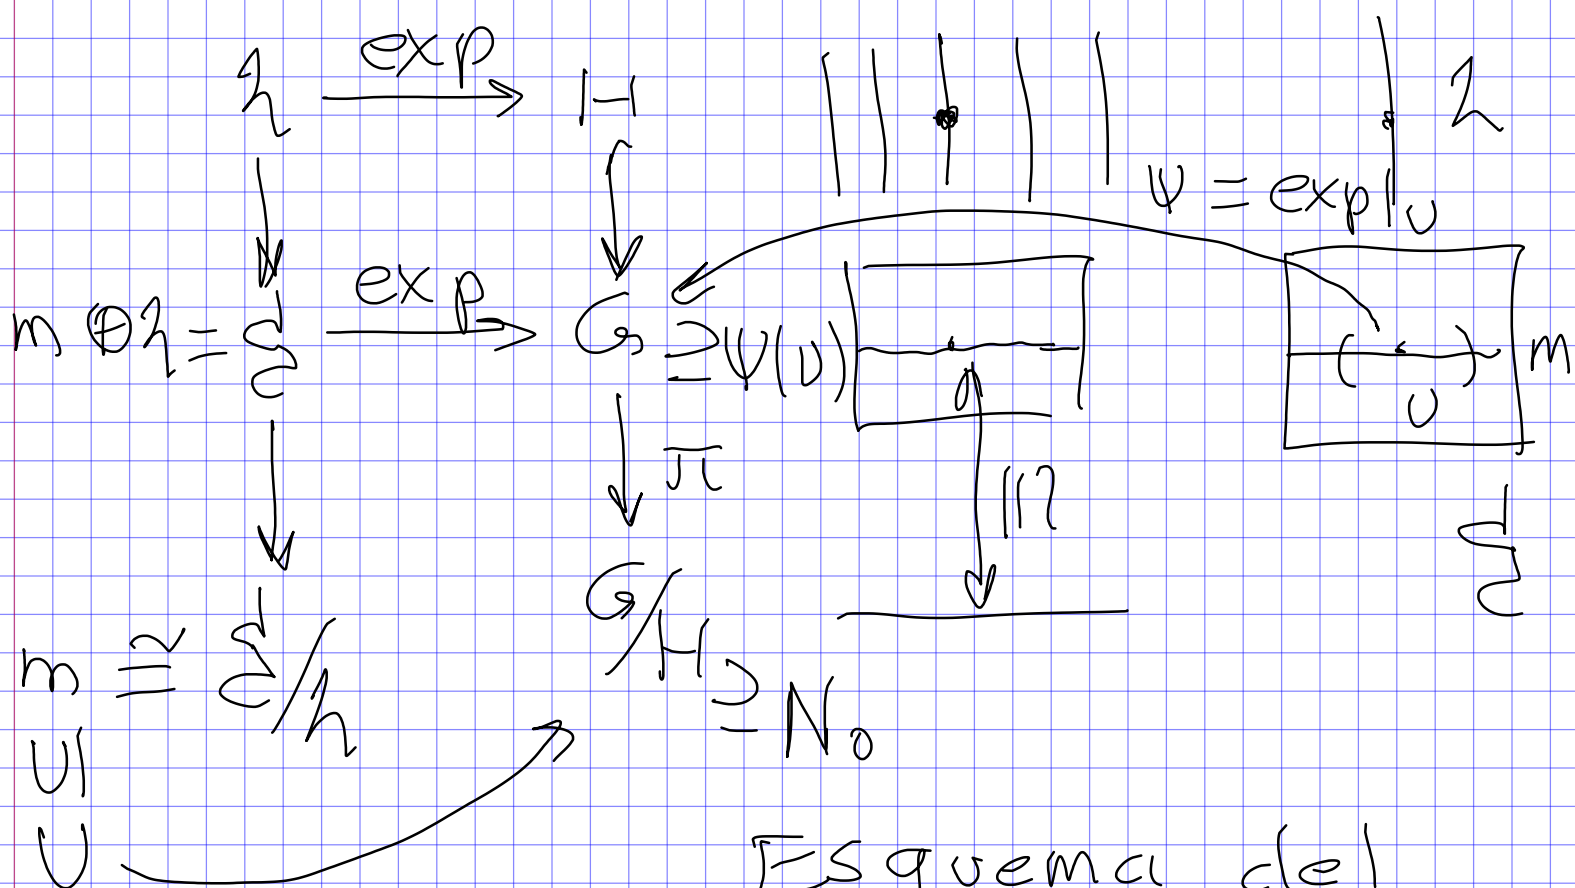 𝔥 exp H
ψ = exp|U 𝔥
m ⊕ 𝔥 = 𝔤 exp G ⊇ ψ(U) ( ) m
U
π
𝔤
m ≅ 𝔤/𝔥 G/H ⊇ N₀
U|
U
Esquema del